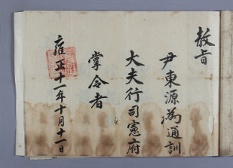 教旨
尹東源為通訓
大夫行司憲府
掌令者
雍正十一年十月十一日